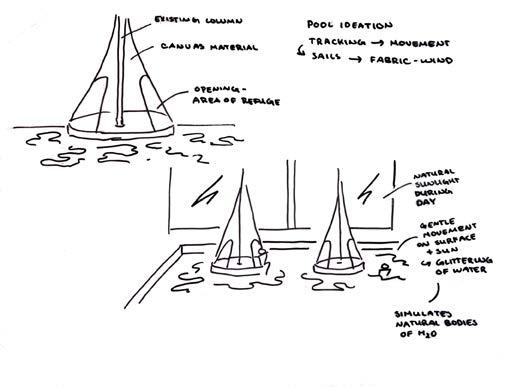 EXISTING COLUMN
CANVAS MATERIAL
OPENING-
AREA OF REFUGE
POOL IDEATION
TRACKING → MOVEMENT
↳ SAILS → FABRIC-WIND
NATURAL
SUNLIGHT
DURING
DAY
GENTLE
MOVEMENT
ON SURFACE
+ SUN
↳ GLITTERING
OF WATER
SIMULATES
NATURAL BODIES
OF H2O